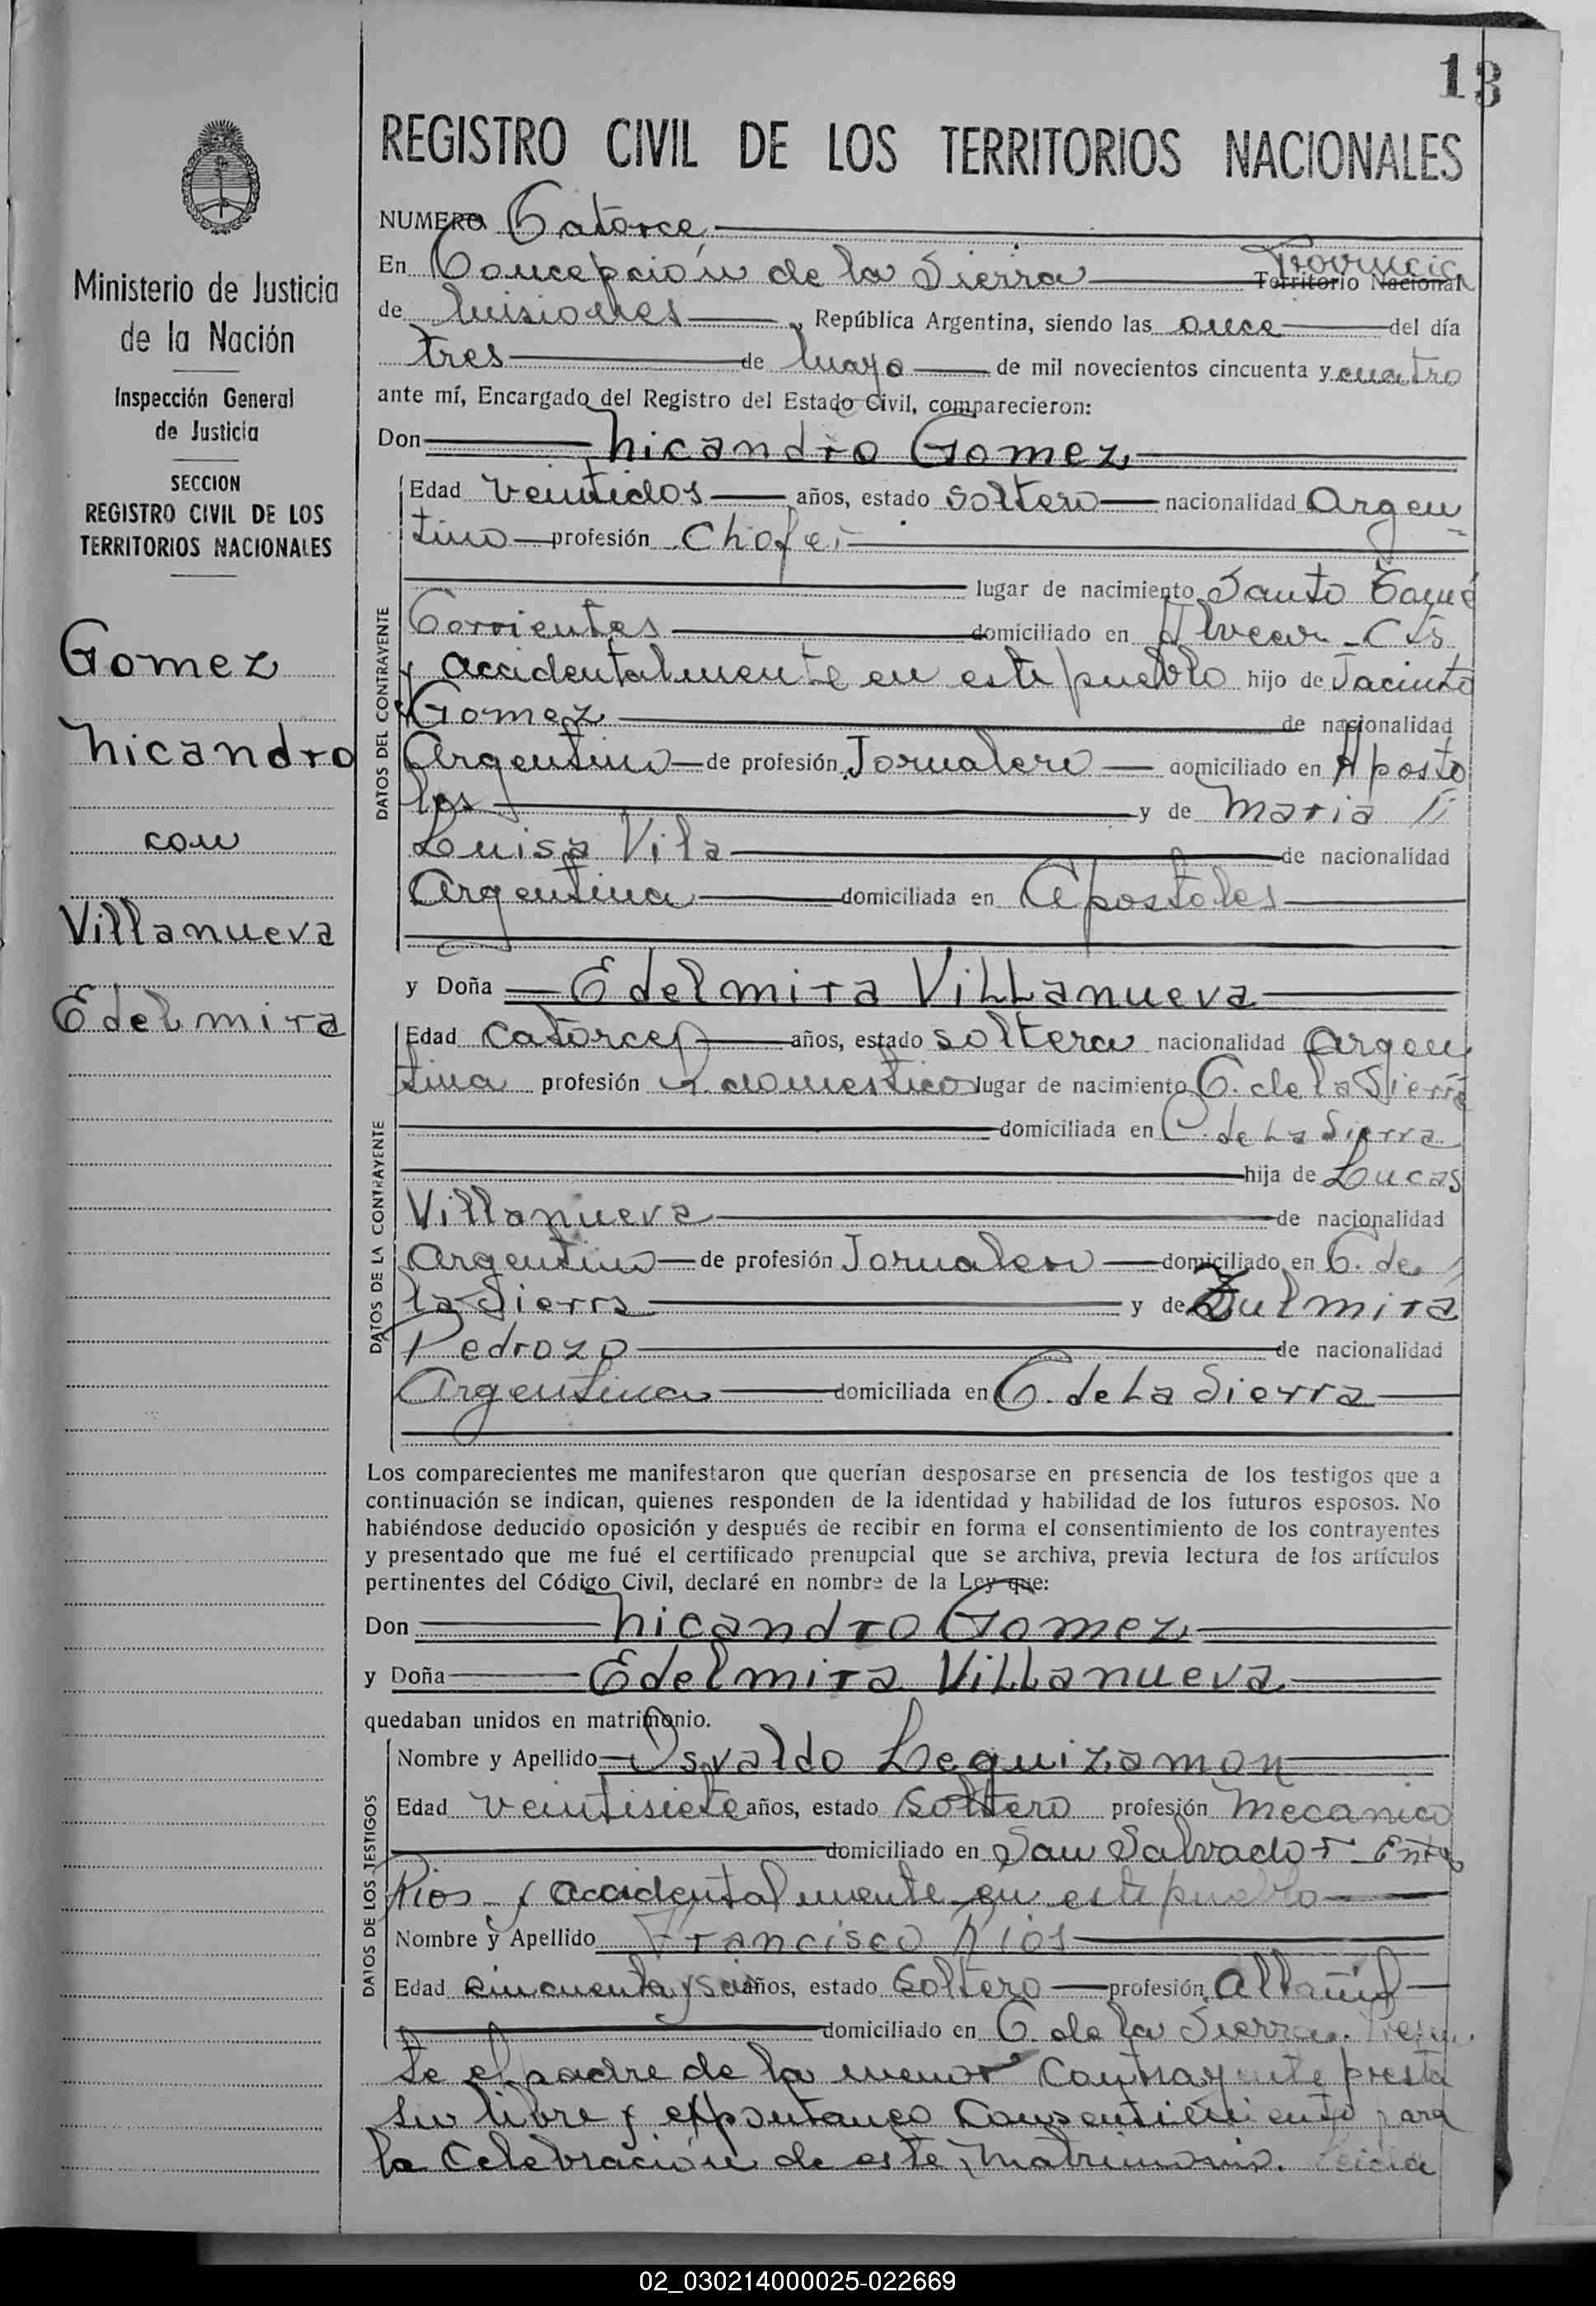 13
REGISTRO CIVIL DE LOS TERRITORIOS NACIONALES
Ministerio de Justicia
de la Nación
Inspección General
de Justicia
SECCION
REGISTRO CIVIL DE LOS
TERRITORIOS NACIONALES
Gomez
Nicandro
con
Villanueva
Edelmira
NUMERO Catorce
En Concepción de la Sierra Provincia Territorio Nacional
de Misiones, República Argentina, siendo las once del día
tres de Mayo de mil novecientos cincuenta y cuatro
ante mí, Encargado del Registro del Estado Civil, comparecieron:
Don Nicandro Gomez
DATOS DEL CONTRAYENTE
Edad veintidos años, estado soltero nacionalidad Argen
tino profesión Chofer
lugar de nacimiento Santo Tomé
Corrientes domiciliado en Alvear - Cts
y accidentalmente en este pueblo hijo de Jacinto
Gomez de nacionalidad
Argentino de profesión Jornalero domiciliado en Aposto
les y de Maria
Luisa Vila de nacionalidad
Argentina domiciliada en Apostoles
y Doña Edelmira Villanueva
DATOS DE LA CONTRAYENTE
Edad catorce años, estado soltera nacionalidad Argen
tina profesión Q. domestico lugar de nacimiento C. de la Sierra
domiciliada en C. de La Sierra
hija de Lucas
Villanueva de nacionalidad
Argentino de profesión Jornalero domiciliado en C. de
la Sierra y de Zulmira
Pedrozo de nacionalidad
Argentina domiciliada en C. de La Sierra
Los comparecientes me manifestaron que querían desposarse en presencia de los testigos que a
continuación se indican, quienes responden de la identidad y habilidad de los futuros esposos. No
habiéndose deducido oposición y después de recibir en forma el consentimiento de los contrayentes
y presentado que me fué el certificado prenupcial que se archiva, previa lectura de los artículos
pertinentes del Código Civil, declaré en nombre de la Ley que:
Don Nicandro Gomez
y Doña Edelmira Villanueva
quedaban unidos en matrimonio.
DATOS DE LOS TESTIGOS
Nombre y Apellido Osvaldo Leguizamon
Edad veintisiete años, estado Soltero profesión Mecanico
domiciliado en San Salvador - Entre
Rios - y accidentalmente en este pueblo
Nombre y Apellido Francisco Rios
Edad cincuenta y seis años, estado Soltero profesión Albañil
domiciliado en C. de la Sierra. Presen
te el padre de la menor contrayente presta
su libre y expontaneo consentimiento para
la celebración de este matrimonio. Leida
02_030214000025-022669